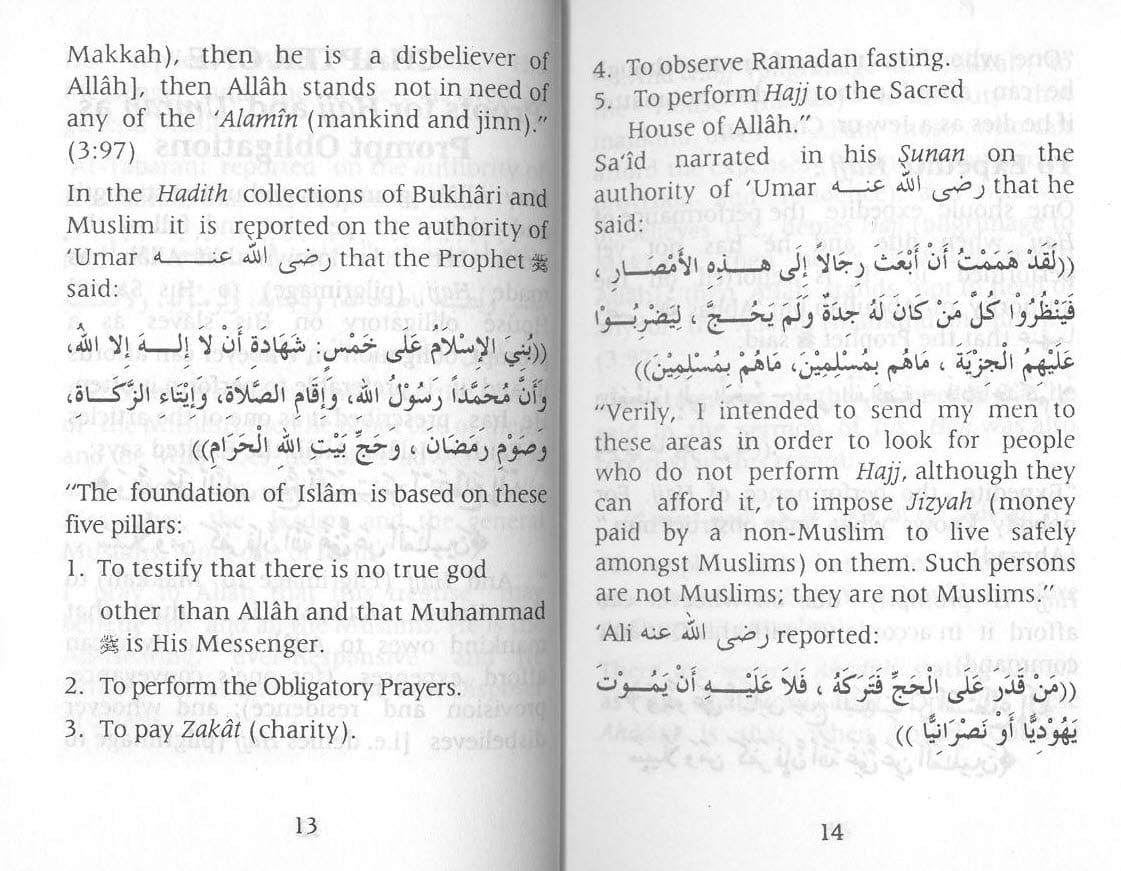 Makkah), then he is a disbeliever of
Allâh], then Allâh stands not in need of
any of the ‘Alamîn (mankind and jinn).”
(3:97)
In the Hadith collections of Bukhâri and
Muslim it is reported on the authority of
‘Umar رضى الله عنه that the Prophet ﷺ
said:
((بُنِيَ الإِسْلاَمُ عَلَى خَمْسٍ: شَهَادَةِ أَنْ لاَ إِلـهَ إِلا اللهُ،
وَأَنَّ مُحَمَّدًا رَسُولُ اللهِ، وَإِقَامِ الصَّلاَةِ، وَإِيْتَاءِ الزَّكَاةِ،
وَصَوْمِ رَمَضَانَ ، وَحَجِّ بَيْتِ اللهِ الْحَرَامِ))
“The foundation of Islâm is based on these
five pillars:
1. To testify that there is no true god
other than Allâh and that Muhammad
ﷺ is His Messenger.
2. To perform the Obligatory Prayers.
3. To pay Zakât (charity).
13
4. To observe Ramadan fasting.
5. To perform Hajj to the Sacred
House of Allâh.”
Sa‘îd narrated in his Sunan on the
authority of ‘Umar رضى الله عنه that he
said:
((لَقَدْ هَمَمْتُ أَنْ أَبْعَثَ رِجَالاً إِلَى هَـذِهِ الأَمْصَارِ ،
فَيَنْظُرُوْا كُلَّ مَنْ كَانَ لَهُ جِدَةٌ وَلَمْ يَحُـجَّ ، لِيَضْرِبُـوْا
عَلَيْهِمُ الْجِزْيَةَ ، مَاهُمْ بِمُسْلِمِيْنَ، مَاهُمْ بِمُسْلِمِيْنَ))
“Verily, I intended to send my men to
these areas in order to look for people
who do not perform Hajj, although they
can afford it, to impose Jizyah (money
paid by a non-Muslim to live safely
amongst Muslims) on them. Such persons
are not Muslims; they are not Muslims.”
‘Ali رضى الله عنه reported:
((مَنْ قَدَرَ عَلَى الْحَجِّ فَتَرَكَهُ ، فَلاَ عَلَيْـهِ أَنْ يَمُـوْتَ
يَهُوْدِيًّا أَوْ نَصْرَانِيًّا ))
14